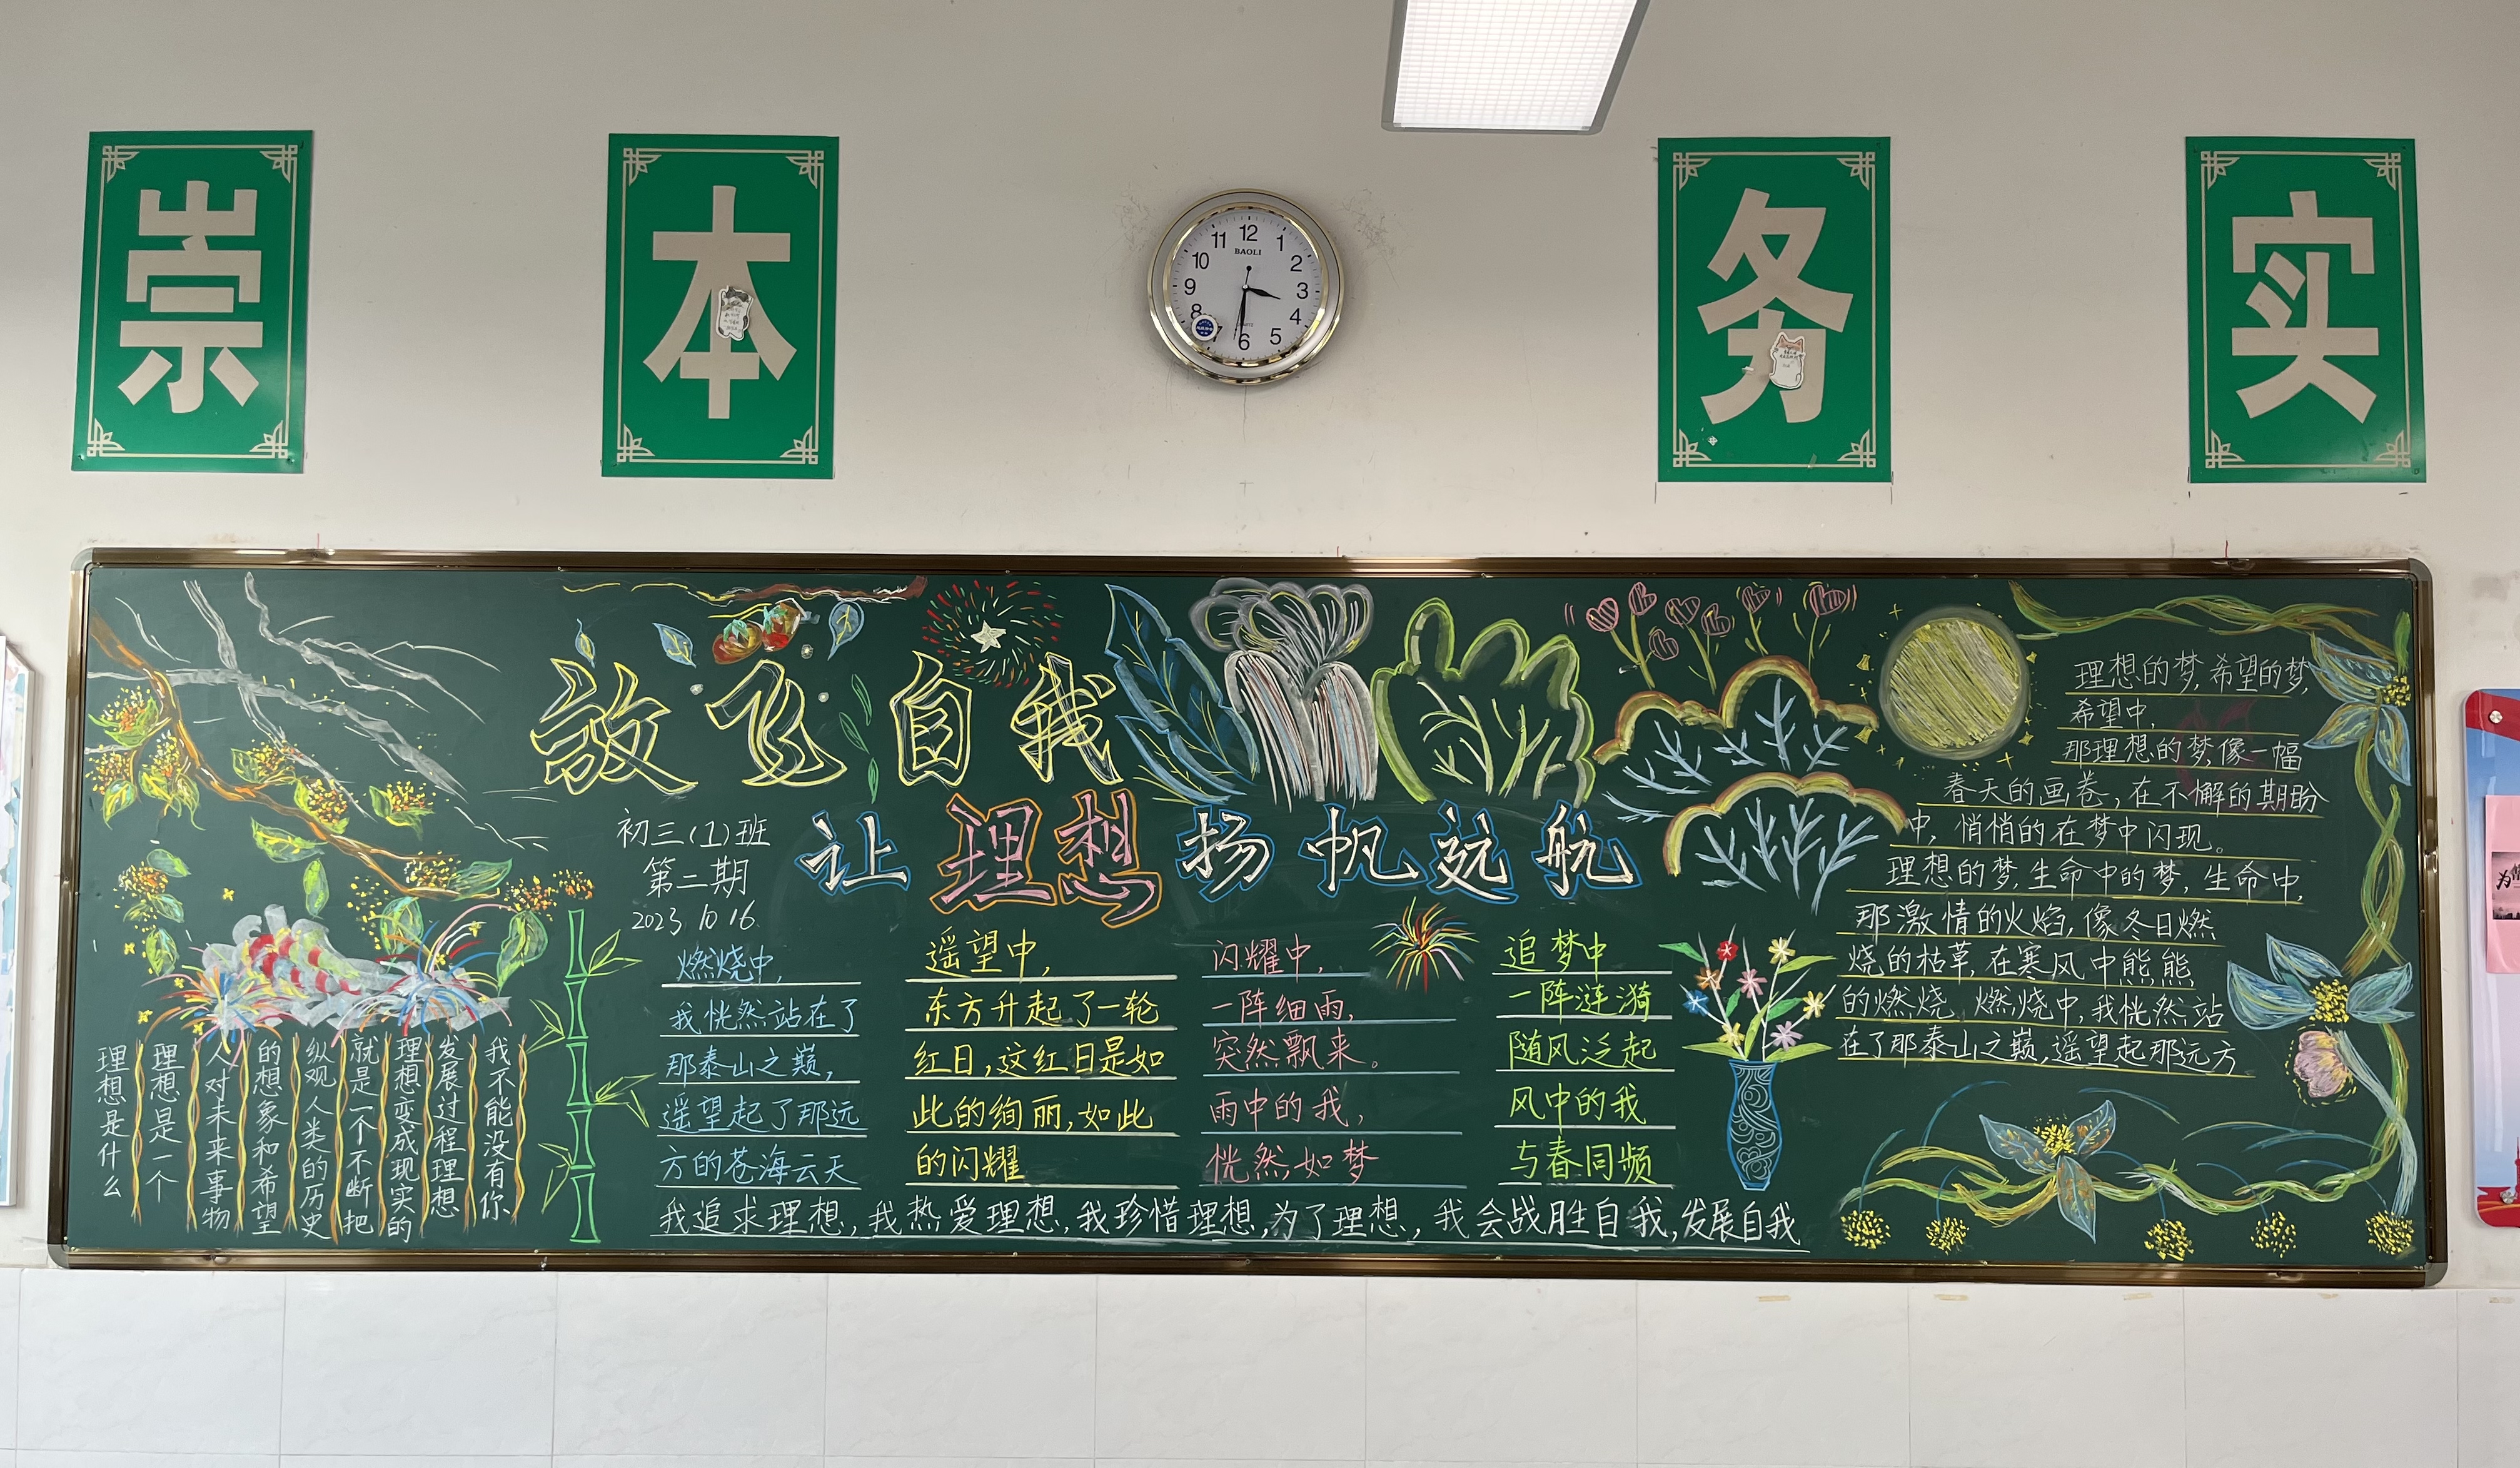 崇本务实
12
1
2
3
4
5
6
7
8
9
10
11
BAOLI
QUARTZ
放飞自我
让理想扬帆远航
初三(1)班
第二期
2023 10 16.
理想是什么
理想是一个
人对未来事物
的想象和希望
纵观人类的历史
就是一个不断把
理想变成现实的
发展过程理想
我不能没有你
燃烧中,
我恍然站在了
那泰山之巅,
遥望起了那远
方的苍海云天
遥望中,
东方升起了一轮
红日,这红日是如
此的绚丽,如此
的闪耀
闪耀中,
一阵细雨,
突然飘来。
雨中的我,
恍然,如梦
追梦中
一阵涟漪
随风泛起
风中的我
与春同频
我追求理想,我热爱理想,我珍惜理想,为了理想,我会战胜自我,发展自我
理想的梦,希望的梦,
希望中,
那理想的梦,像一幅
春天的画卷,在不懈的期盼
中,悄悄的在梦中闪现。
理想的梦,生命中的梦,生命中,
那激情的火焰,像冬日燃
烧的枯草,在寒风中熊熊
的燃烧 燃烧中,我恍然站
在了那泰山之巅,遥望起那远方